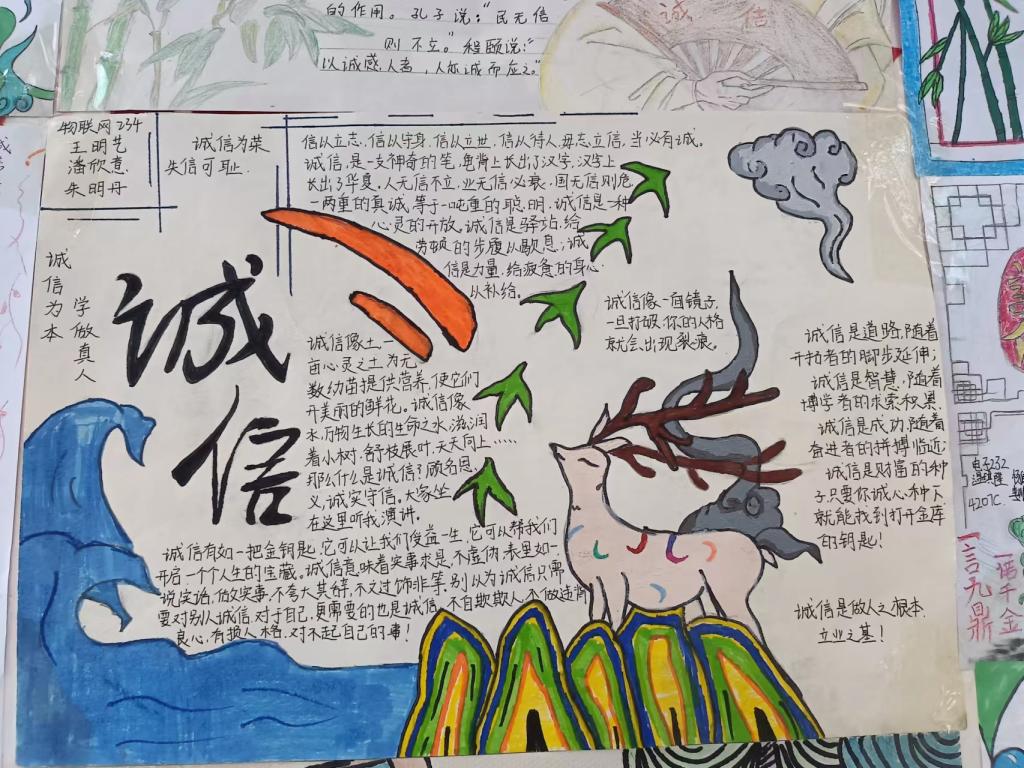 的作用。孔子说："民无信
则不立。"程颐说："
以诚感人者，人亦诚而应之。"
诚信
物联网234
王明艺
潘欣熹
朱明丹
诚信为荣
失信可耻.
信从立志,信从守身,信从立世,信从待人,毋忘立信,当必有诚。
诚信,是一支神奇的笔,龟背上长出了汉字,汉字上
长出了华夏,人无信不立,业无信必衰,国无信则危
一两重的真诚,等于一吨重的聪明,诚信是一种
心灵的开放,诚信是驿站,给
劳顿的步履从歇息;诚
信是力量,给疲惫的身心
从补给。
诚信为本
学做真人
诚信
诚信像土一
亩心灵之土为无
数幼苗提供营养,使它们
开美丽的鲜花。诚信像
水,万物生长的生命之水,滋润
着小树,舒枝展叶,天天向上……
那么什么是诚信?顾名思
义,诚实守信。大家坐
在这里听我演讲。
诚信有如一把金钥匙,它可以让我们受益一生,它可以帮我们
开启一个个人生的宝藏。诚信意味着实事求是,不虚伪,表里如一,
说实话,做实事,不夸大其辞,不文过饰非等,别以为诚信只需
要对别人诚信,对于自己,更需要的也是诚信,不自欺欺人,不做违背
良心,有损人格,对不起自己的事!
诚信像一面镜子,
一旦打破,你的人格
就会出现裂痕。
诚信是道路,随着
开拓者的脚步延伸;
诚信是智慧,随着
博学者的求索积累
诚信是成功,随着
奋进者的拼搏临近;
诚信是财富的种
子,只要你诚心种下
就能找到打开金库
的钥匙!
诚信是做人之根本
立业之基!
电子232
4207C
一言九鼎
一诺千金